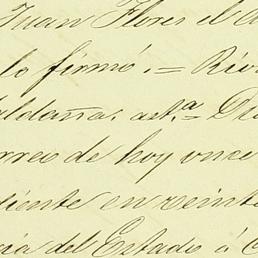 Juan Flores el
lo firmó.= Riv
aldaña, ast.ª D
rreo de hoy once
diente en veinte
ia del Estado á C